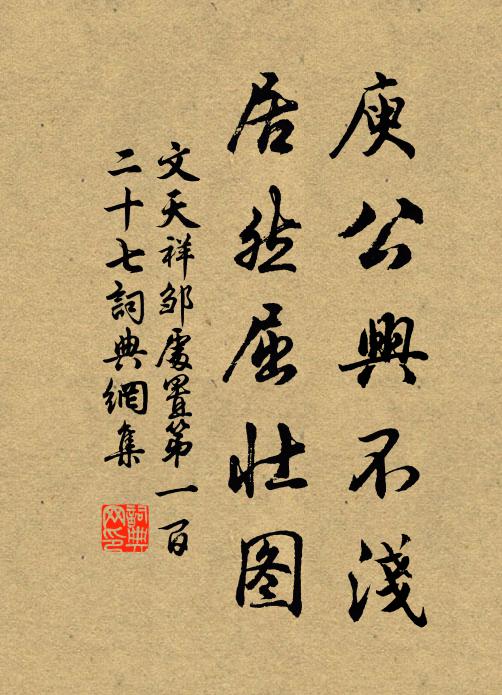 庾公興不淺
居然屈壯图
文天祥邹處置第一百
二十七詞典網集
詞典
网印